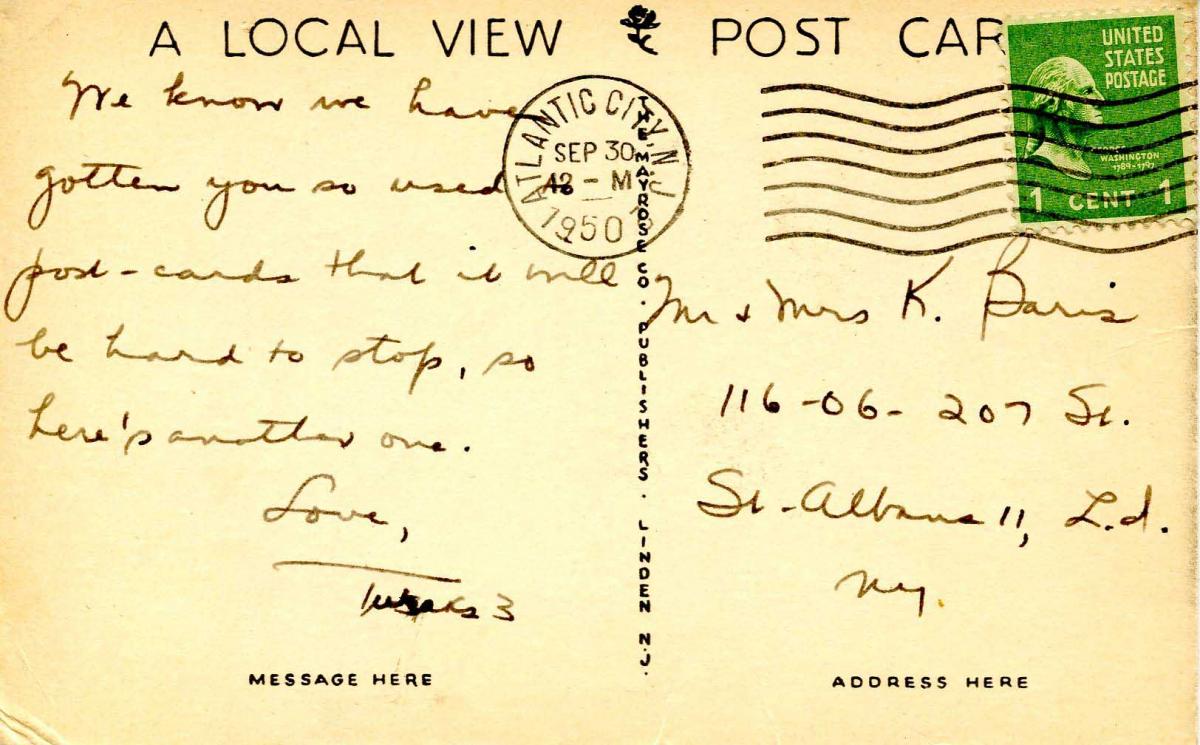 A LOCAL VIEW POST CAR
UNITED
STATES
POSTAGE
WASHINGTON
1789-1797
1 CENT 1
ATLANTIC CITY, N.J.
SEP 30
12 - M
1950
We know we have
gotten you so used to
post-cards that it will
be hard to stop, so
here's another one.
Love,
3
MESSAGE HERE
THE MAYROSE CO. PUBLISHERS. LINDEN N.J.
Mr + Mrs K. Baris
116-06- 207 St.
St. Albans 11, L.I.
NY.
ADDRESS HERE